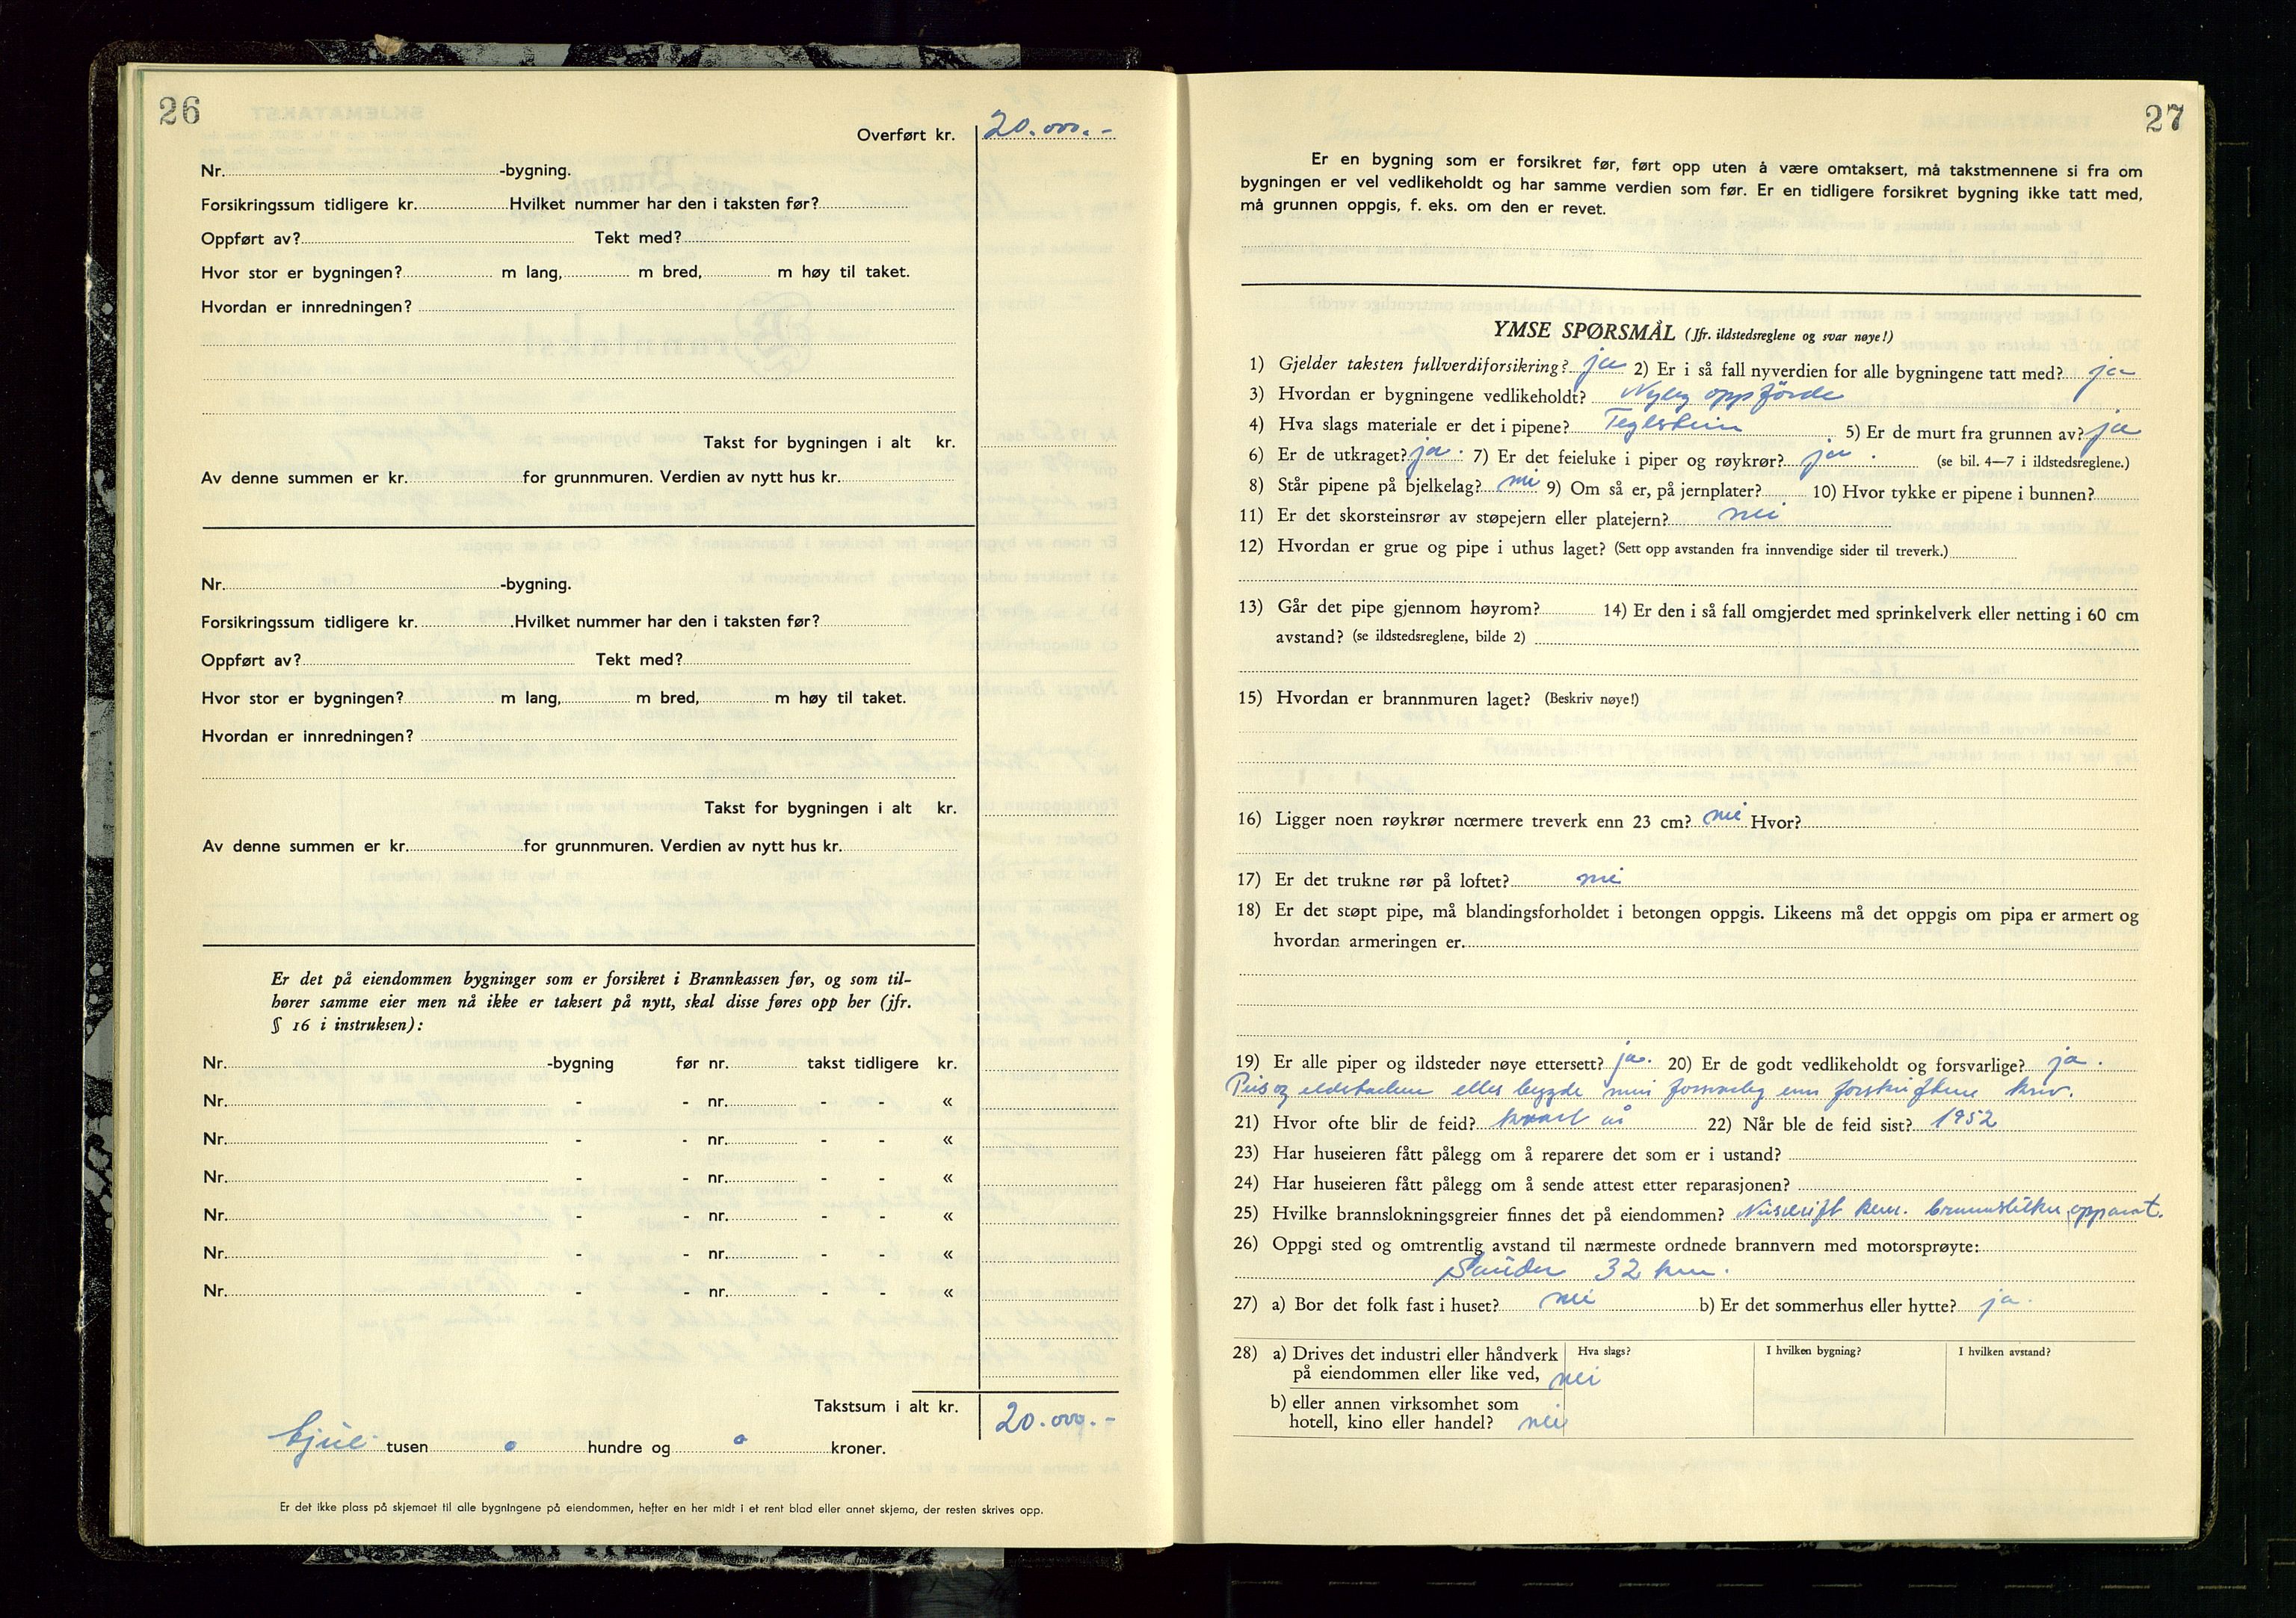 26
Overført kr. 20.000.-
Nr. -bygning.
Forsikringssum tidligere kr. Hvilket nummer har den i taksten før?
Oppført av? Tekt med?
Hvor stor er bygningen? m lang, m bred, m høy til taket.
Hvordan er innredningen?
Takst for bygningen i alt kr.
Av denne summen er kr. for grunnmuren. Verdien av nytt hus kr.
Nr. -bygning.
Forsikringssum tidligere kr. Hvilket nummer har den i taksten før?
Oppført av? Tekt med?
Hvor stor er bygningen? m lang, m bred, m høy til taket.
Hvordan er innredningen?
Takst for bygningen i alt kr.
Av denne summen er kr. for grunnmuren. Verdien av nytt hus kr.
Er det på eiendommen bygninger som er forsikret i Brannkassen før, og som til-
hører samme eier men nå ikke er taksert på nytt, skal disse føres opp her (jfr.
§ 16 i instruksen):
Nr. -bygning før nr. takst tidligere kr.
Nr. - - nr. - - «
Nr. - - nr. - - «
Nr. - - nr. - - «
Nr. - - nr. - - «
Nr. - - nr. - - «
Nr. - - nr. - - «
Takstsum i alt kr. 20.000.-
tjue tusen o hundre og o kroner.
Er det ikke plass på skjemaet til alle bygningene på eiendommen, hefter en her midt i et rent blad eller annet skjema, der resten skrives opp.
27
Er en bygning som er forsikret før, ført opp uten å være omtaksert, må takstmennene si fra om
bygningen er vel vedlikeholdt og har samme verdien som før. Er en tidligere forsikret bygning ikke tatt med,
må grunnen oppgis, f. eks. om den er revet.
YMSE SPØRSMÅL (Jfr. ildstedsreglene og svar nøye!)
1) Gjelder taksten fullverdiforsikring? ja 2) Er i så fall nyverdien for alle bygningene tatt med? ja
3) Hvordan er bygningene vedlikeholdt? Nyleg oppförde
4) Hva slags materiale er det i pipene? Teglstein 5) Er de murt fra grunnen av? ja
6) Er de utkraget? ja. 7) Er det feieluke i piper og røykrør? ja. (se bil. 4—7 i ildstedsreglene.)
8) Står pipene på bjelkelag? nei 9) Om så er, på jernplater? 10) Hvor tykke er pipene i bunnen?
11) Er det skorsteinsrør av støpejern eller platejern? nei
12) Hvordan er grue og pipe i uthus laget? (Sett opp avstanden fra innvendige sider til treverk.)
13) Går det pipe gjennom høyrom? 14) Er den i så fall omgjerdet med sprinkelverk eller netting i 60 cm
avstand? (se ildstedsreglene, bilde 2)
15) Hvordan er brannmuren laget? (Beskriv nøye!)
16) Ligger noen røykrør nærmere treverk enn 23 cm? nei Hvor?
17) Er det trukne rør på loftet? nei
18) Er det støpt pipe, må blandingsforholdet i betongen oppgis. Likeens må det oppgis om pipa er armert og
hvordan armeringen er.
19) Er alle piper og ildsteder nøye ettersett? ja. 20) Er de godt vedlikeholdt og forsvarlige? ja.
Peis og eldstadene elles bygde forskriftene krev.
21) Hvor ofte blir de feid? kvart år 22) Når ble de feid sist? 1952
23) Har huseieren fått pålegg om å reparere det som er i ustand?
24) Har huseieren fått pålegg om å sende attest etter reparasjonen?
25) Hvilke brannslokningsgreier finnes det på eiendommen? apparat.
26) Oppgi sted og omtrentlig avstand til nærmeste ordnede brannvern med motorsprøyte:
32 km.
27) a) Bor det folk fast i huset? nei b) Er det sommerhus eller hytte? ja.
28) a) Drives det industri eller håndverk Hva slags? I hvilken bygning? I hvilken avstand?
på eiendommen eller like ved, nei
b) eller annen virksomhet som
hotell, kino eller handel? nei